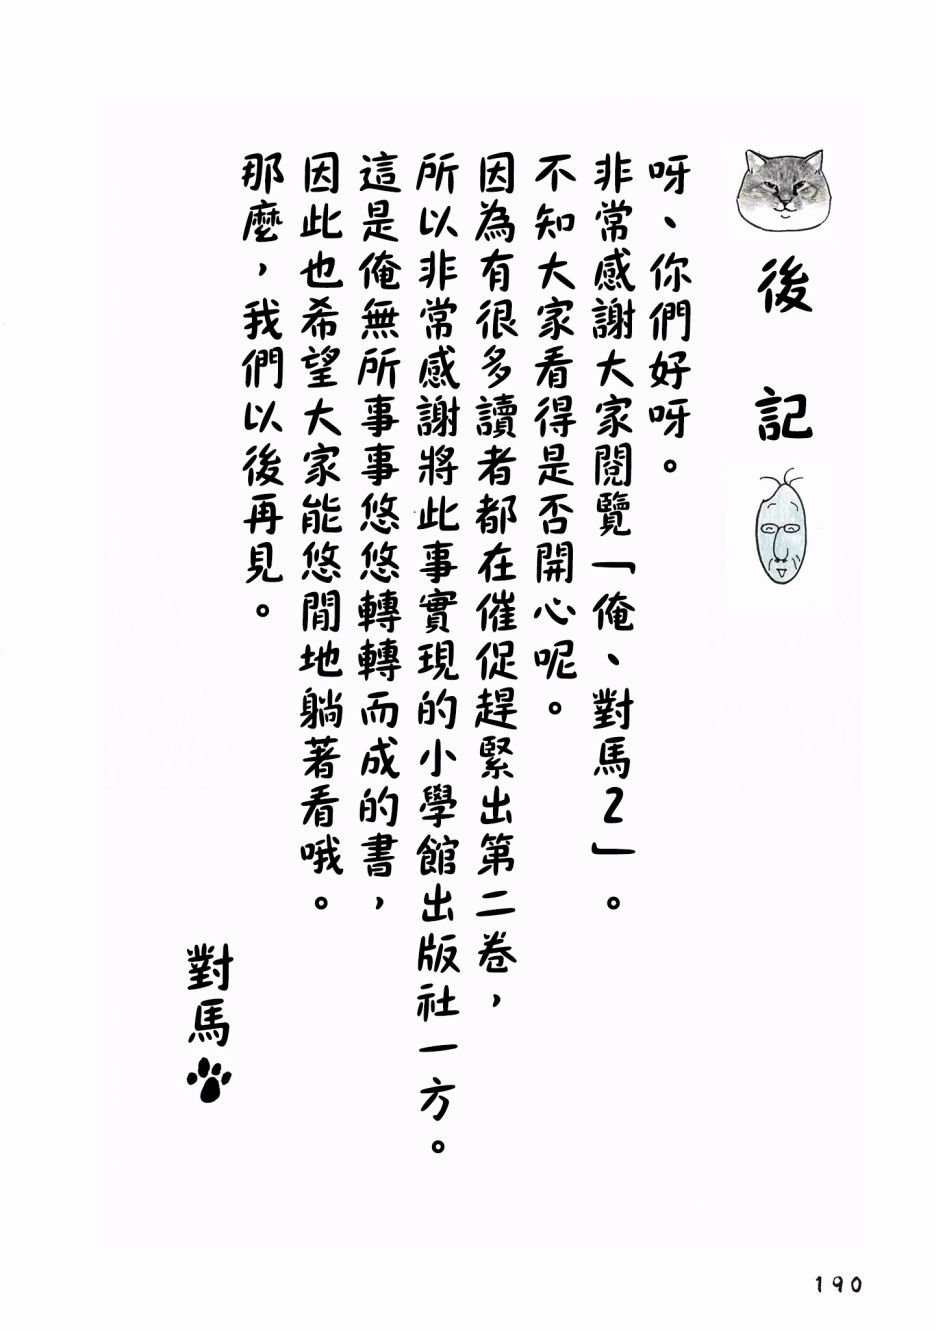 後記
呀、你們好呀。
非常感謝大家閱覽「俺、對馬2」。
不知大家看得是否開心呢。
因為有很多讀者都在催促趕緊出第二卷，
所以非常感謝將此事實現的小學館出版社一方。
這是俺無所事事悠悠轉轉而成的書，
因此也希望大家能悠閒地躺著看哦。
那麼，我們以後再見。
對馬
190